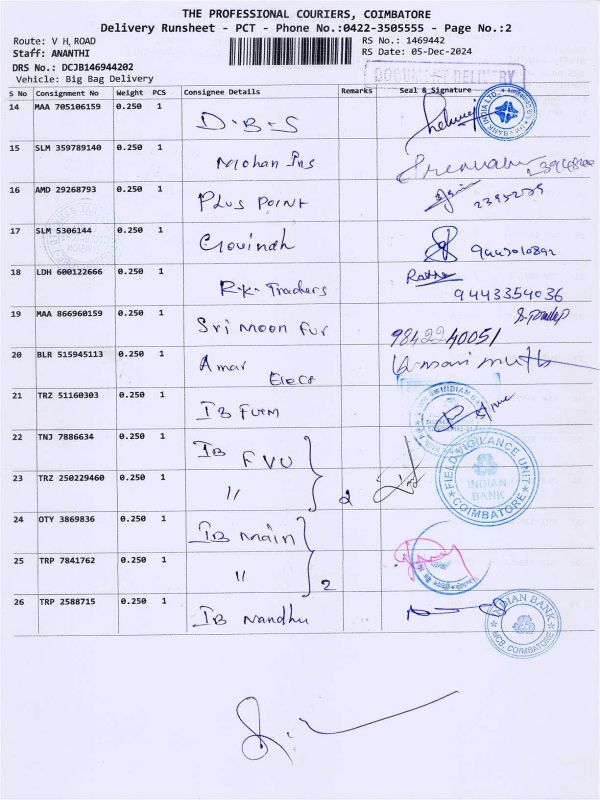 THE PROFESSIONAL COURIERS, COIMBATORE
Delivery Runsheet - PCT - Phone No.:0422-3505555 - Page No.:2
Route: V H, ROAD RS No.: 1469442
Staff: ANANTHI RS Date: 05-Dec-2024
DRS No.: DCJB146944202
Vehicle: Big Bag Delivery
DOCUMENT DELIVERY
S No Consignment No Weight PCS Consignee Details Remarks Seal & Signature
14 MAA 705106159 0.250 1 D.B.S
BANK INDIA LTD.
15 SLM 359789140 0.250 1 Mohan Ins
16 AMD 29268793 0.250 1 Plus Point 2395235
17 SLM 5306144 0.250 1 Govindh 9443010892
18 LDH 600122666 0.250 1 R.K. Traders Ratha
9443354036
19 MAA 866960159 0.250 1 Sri Moon Fur S. Pradeep
9842240051
20 BLR 515945113 0.250 1 Amar Elecs
21 TRZ 51160303 0.250 1 IB
INDIAN BANK
22 TNJ 7886634 0.250 1 IB FVU
23 TRZ 250229460 0.250 1 " 2
FIELD VIGILANCE UNIT
INDIAN BANK
COIMBATORE
24 OTY 3869836 0.250 1 IB Main
25 TRP 7841762 0.250 1 " 2
26 TRP 2588715 0.250 1 IB Nandhu
INDIAN BANK
MCB, COIMBATORE